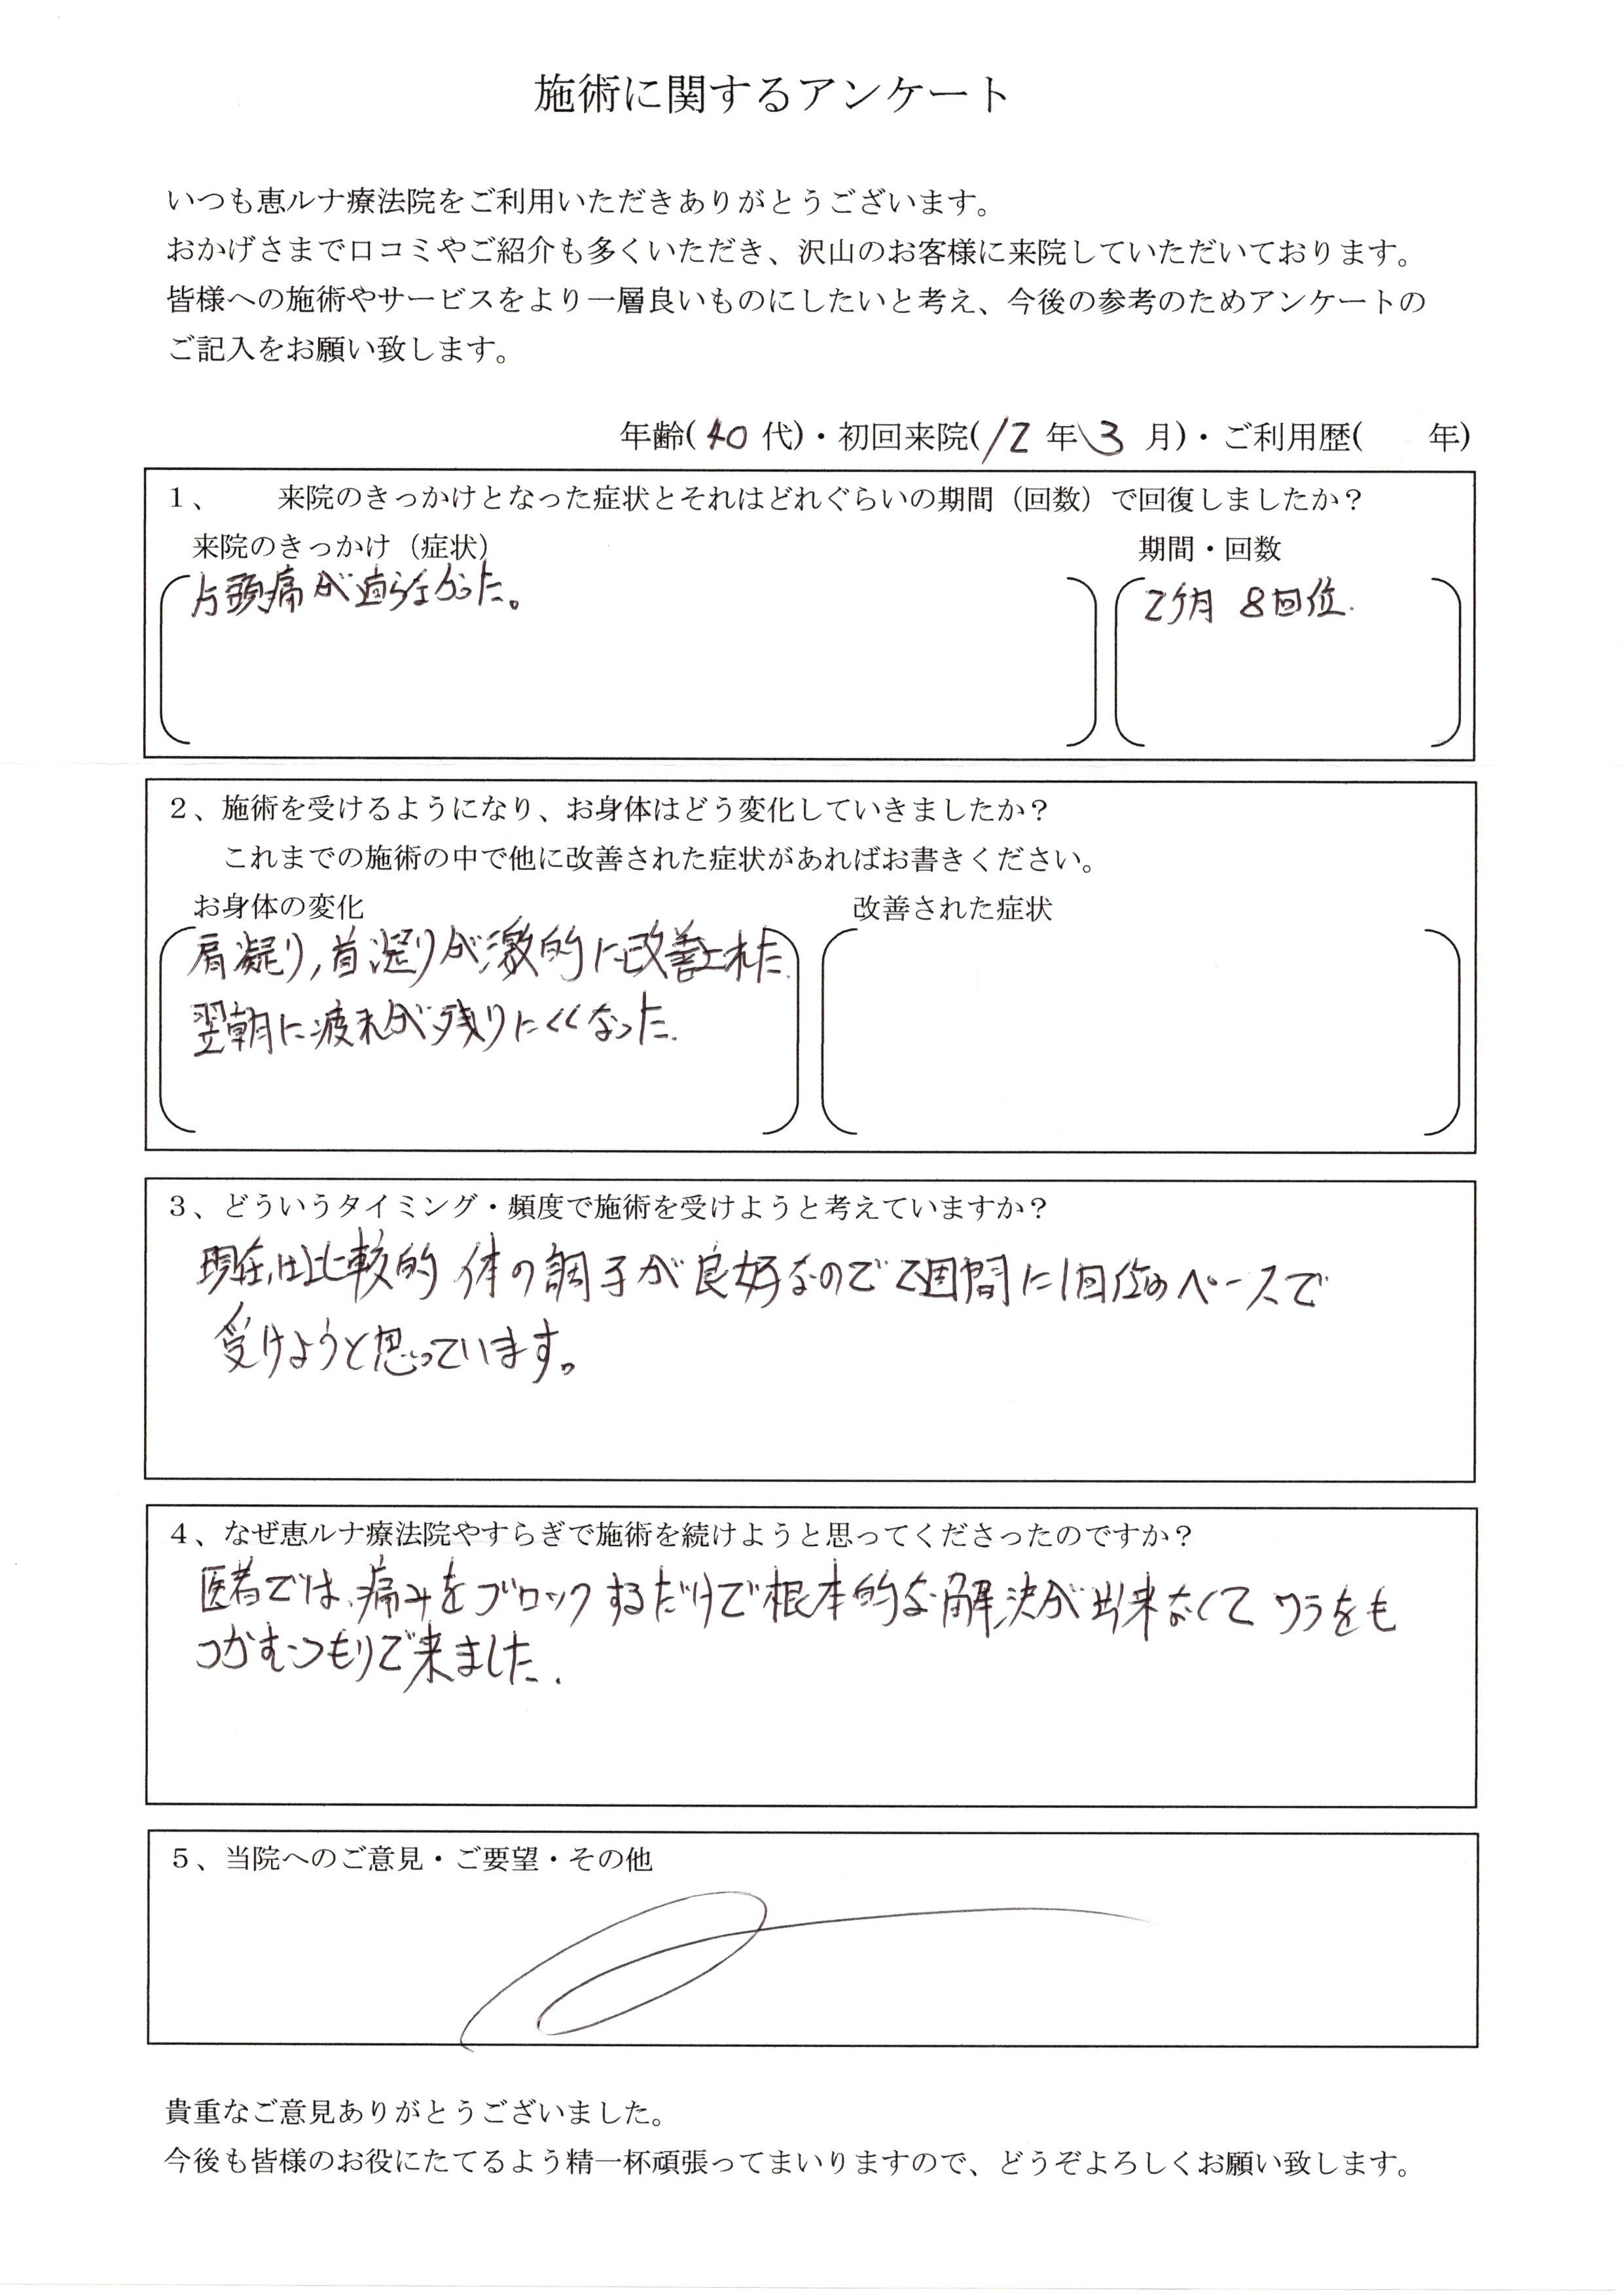 施術に関するアンケート
いつも恵ルナ療法院をご利用いただきありがとうございます。
おかげさまで口コミやご紹介も多くいただき、沢山のお客様に来院していただいております。
皆様への施術やサービスをより一層良いものにしたいと考え、今後の参考のためアンケートの
ご記入をお願い致します。
年齢(40代)・初回来院(12年3月)・ご利用歴(　　年)
１、　　来院のきっかけとなった症状とそれはどれぐらいの期間（回数）で回復しましたか？
来院のきっかけ（症状）　期間・回数
片頭痛が直らなかった。　2ヶ月 8回位.
２、施術を受けるようになり、お身体はどう変化していきましたか？
これまでの施術の中で他に改善された症状があればお書きください。
お身体の変化　改善された症状
肩凝り,首凝りが激的に改善された.
翌朝に疲れが残りにくくなった.
３、どういうタイミング・頻度で施術を受けようと考えていますか？
現在は比較的 体の調子が良好なので2週間に1回位のペースで
受けようと思っています。
４、なぜ恵ルナ療法院やすらぎで施術を続けようと思ってくださったのですか？
医者では、痛みをブロックするだけで根本的な解決が出来なくて ワラをも
つかむつもりで来ました.
５、当院へのご意見・ご要望・その他
貴重なご意見ありがとうございました。
今後も皆様のお役にたてるよう精一杯頑張ってまいりますので、どうぞよろしくお願い致します。